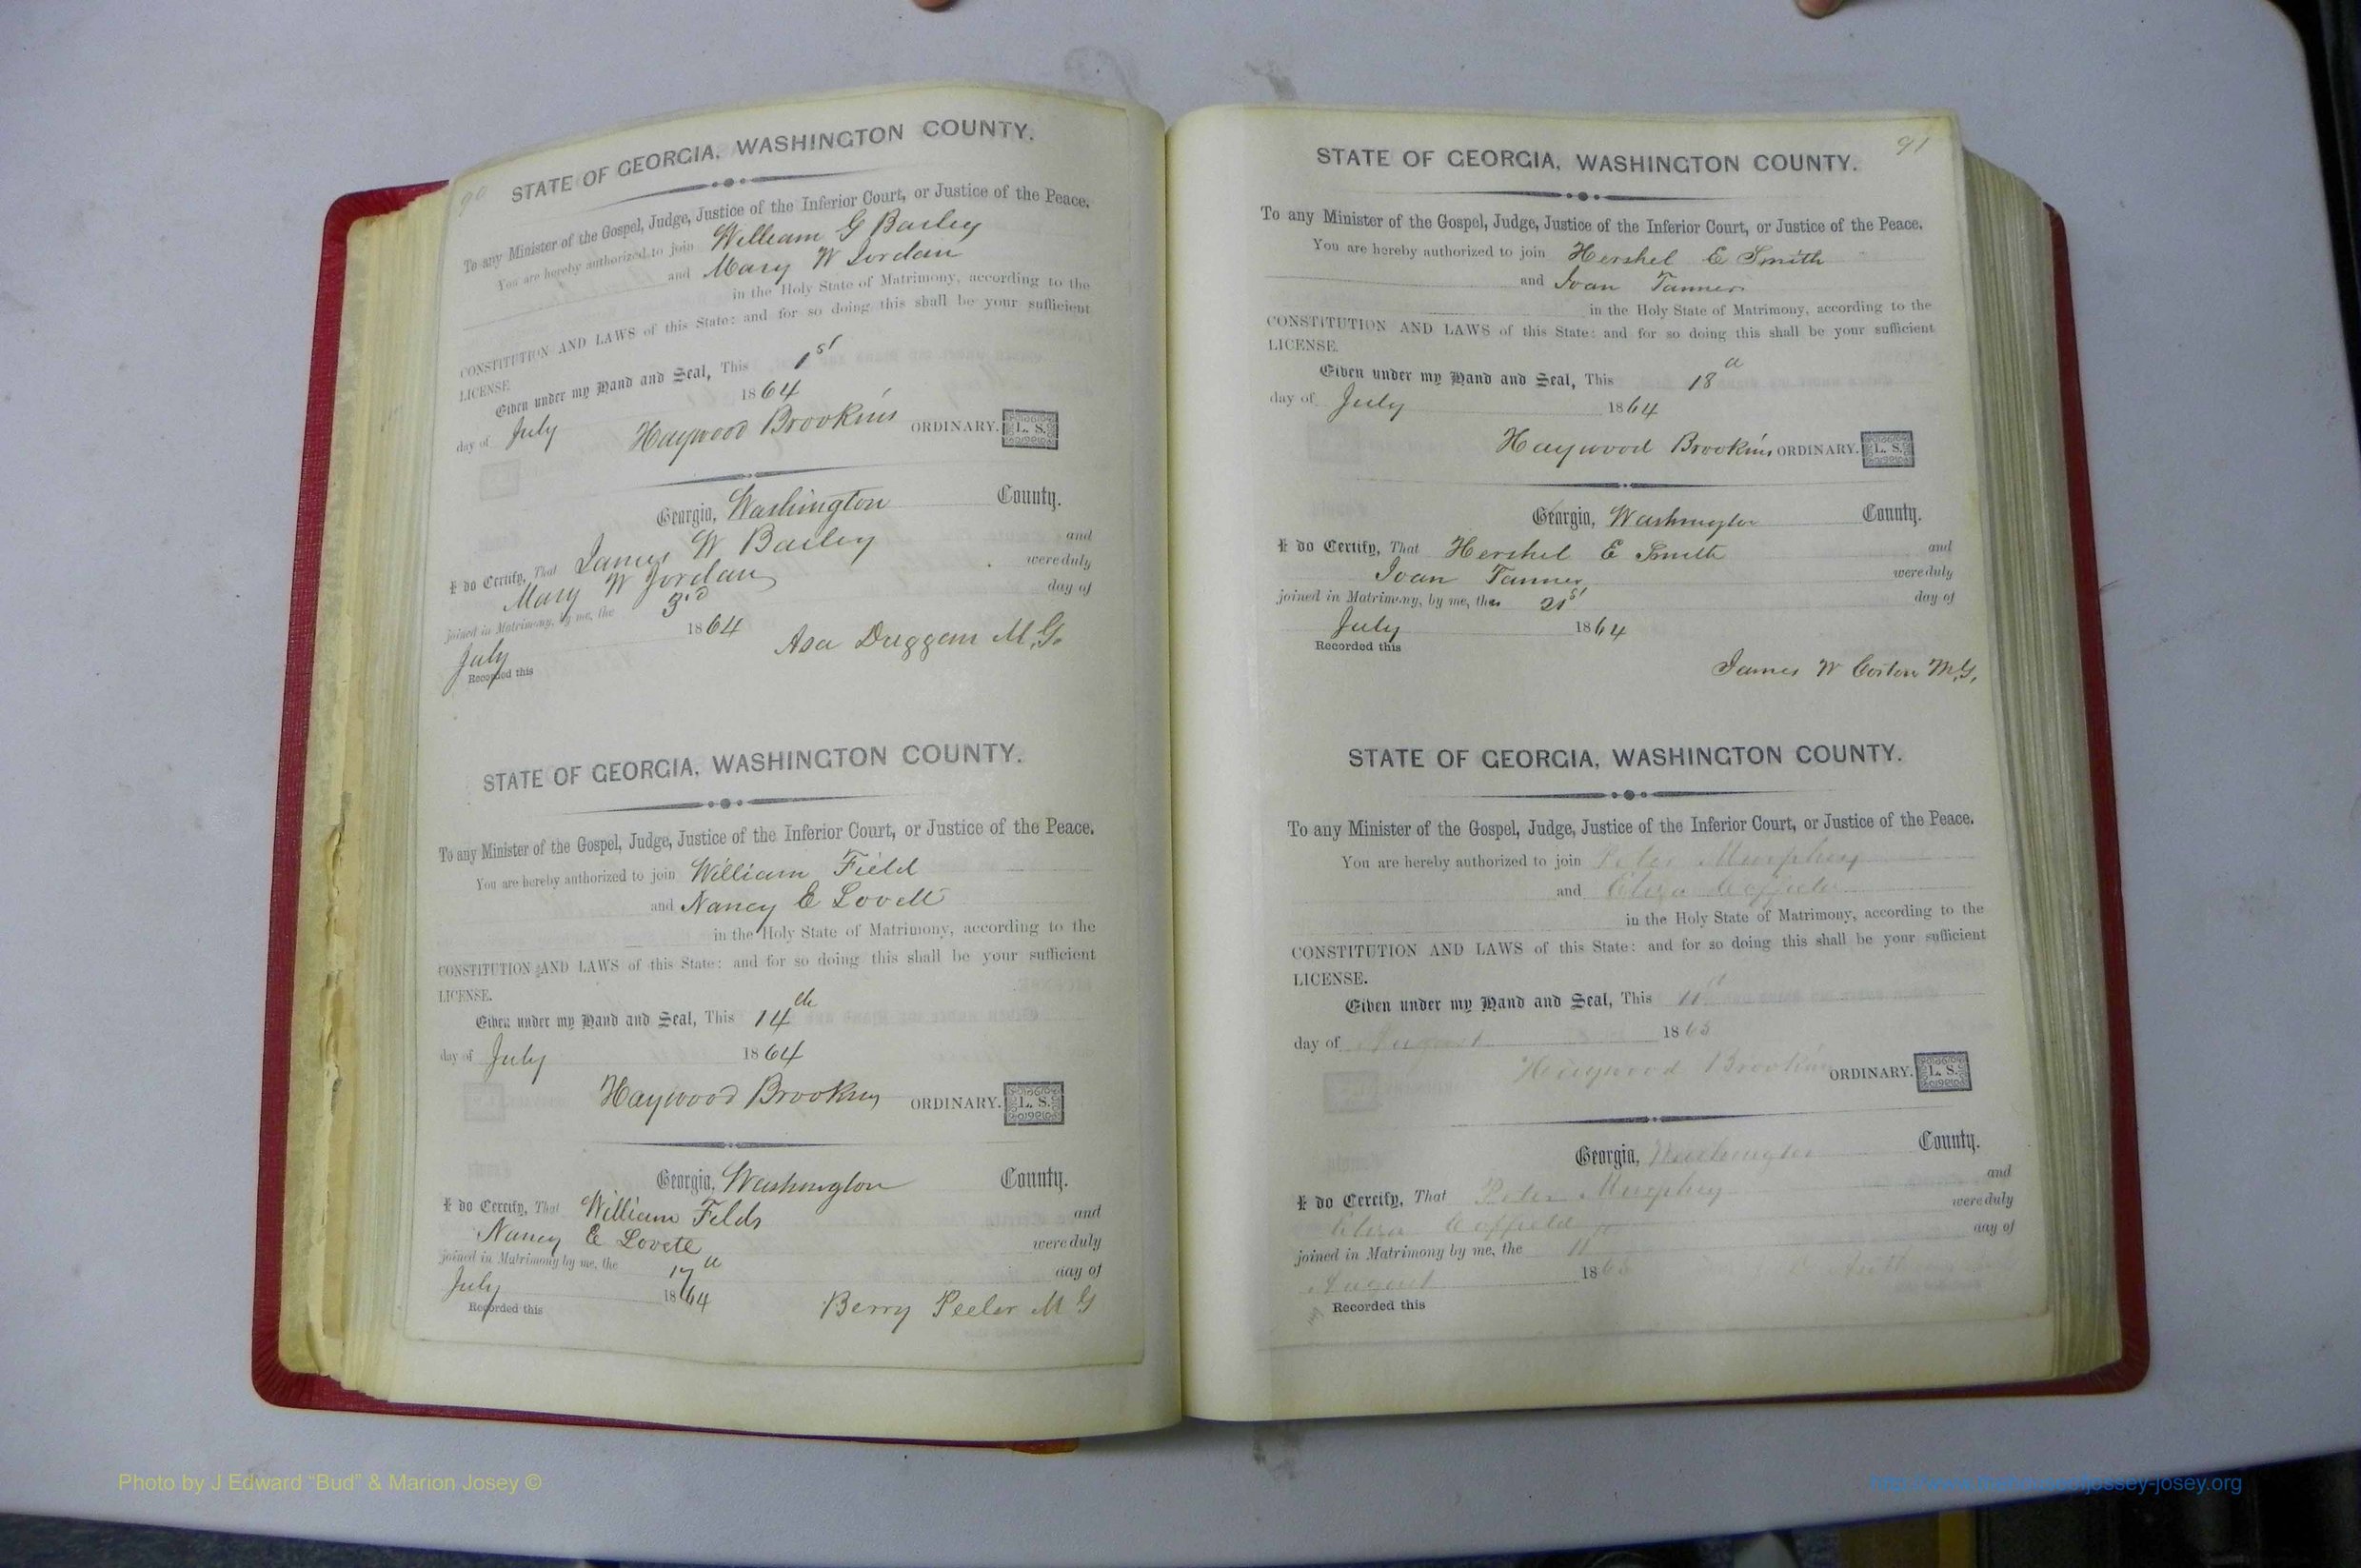 90
STATE OF GEORGIA, WASHINGTON COUNTY.
To any Minister of the Gospel, Judge, Justice of the Inferior Court, or Justice of the Peace.
You are hereby authorized to join William G Bailey
and Mary W Jordan
in the Holy State of Matrimony, according to the
CONSTITUTION AND LAWS of this State: and for so doing this shall be your sufficient
LICENSE.
Given under my Hand and Seal, This 1st
day of July 1864
Haywood Brookins ORDINARY. L. S.
Georgia, Washington County.
I do Certify, That James W Bailey and
Mary W Jordan were duly
joined in Matrimony, by me, the 3rd day of
July 1864
Asa Duggan M.G.
Recorded this
STATE OF GEORGIA, WASHINGTON COUNTY.
To any Minister of the Gospel, Judge, Justice of the Inferior Court, or Justice of the Peace.
You are hereby authorized to join William Field
and Nancy E Lovett
in the Holy State of Matrimony, according to the
CONSTITUTION AND LAWS of this State: and for so doing this shall be your sufficient
LICENSE.
Given under my Hand and Seal, This 14th
day of July 1864
Haywood Brookins ORDINARY. L. S.
Georgia, Washington County.
I do Certify, That William Felds and
Nancy E Lovete were duly
joined in Matrimony by me, the 17th day of
July 1864
Berry Peeler M G
Recorded this
91
STATE OF GEORGIA, WASHINGTON COUNTY.
To any Minister of the Gospel, Judge, Justice of the Inferior Court, or Justice of the Peace.
You are hereby authorized to join Hershel E Smith
and Joan Tanner
in the Holy State of Matrimony, according to the
CONSTITUTION AND LAWS of this State: and for so doing this shall be your sufficient
LICENSE.
Given under my Hand and Seal, This 18th
day of July 1864
Haywood Brookins ORDINARY. L. S.
Georgia, Washington County.
I do Certify, That Hershel E Smith and
Joan Tanner were duly
joined in Matrimony, by me, the 21st day of
July 1864
Recorded this
James W M.G.
STATE OF GEORGIA, WASHINGTON COUNTY.
To any Minister of the Gospel, Judge, Justice of the Inferior Court, or Justice of the Peace.
You are hereby authorized to join Peter Murphey
and Eliza Coffield
in the Holy State of Matrimony, according to the
CONSTITUTION AND LAWS of this State: and for so doing this shall be your sufficient
LICENSE.
Given under my Hand and Seal, This 11th
day of August 1865
Haywood Brookins ORDINARY. L. S.
Georgia, Washington County.
I do Certify, That Peter Murphey and
Eliza Coffield were duly
joined in Matrimony by me, the 11 day of
August 1865
Recorded this
Photo by J Edward “Bud” & Marion Josey ©